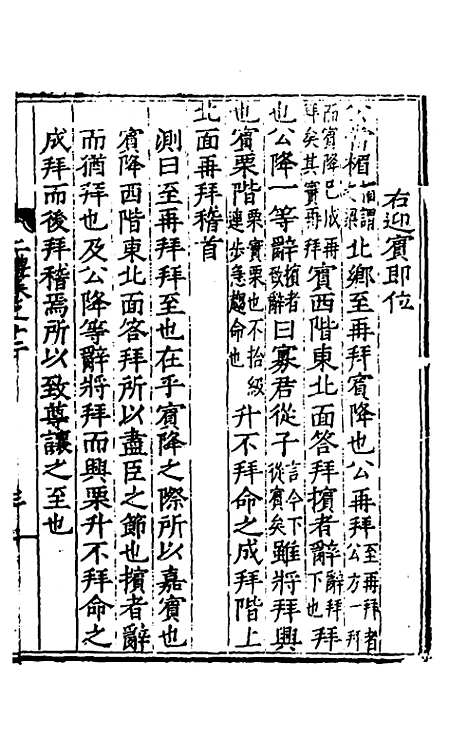 右迎賓即位
公當楣楣謂之梁北鄉至再拜賓降也公再拜至再拜者公方一拜
而賓降已成再拜矣其實再拜賓西階東北面答拜擯者辭辭拜下也拜
也公降一等辭擯者致辭曰寡君從子言今下從賓矣雖將拜興
也賓栗階栗實栗也不拾級連步急趨命也升不拜命之成拜階上
北面再拜稽首
測曰至再拜拜至也在乎賓降之際所以嘉賓也
賓降西階東北面答拜所以盡臣之節也擯者辭
而猶拜也及公降等辭將拜而興栗升不拜命之
成拜而後拜稽焉所以致尊讓之至也
二禮
卷之十二
三